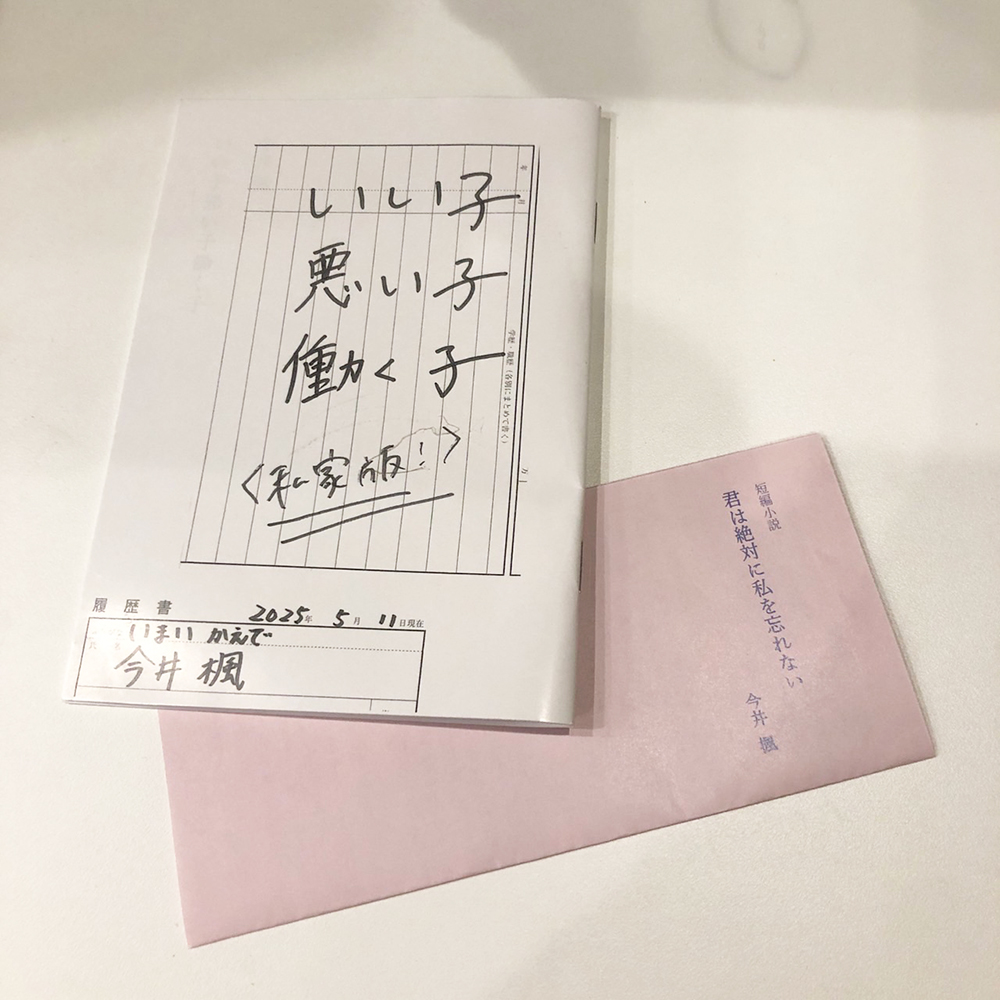 いい子
悪い子
働く子
<私家版!>
年
月
学歴・職歴(各別にまとめて書く)
履歴書
2025年 5月 11日現在
いまい かえで
今井 楓
短編小説
君は絶対に私を忘れない
今井 楓